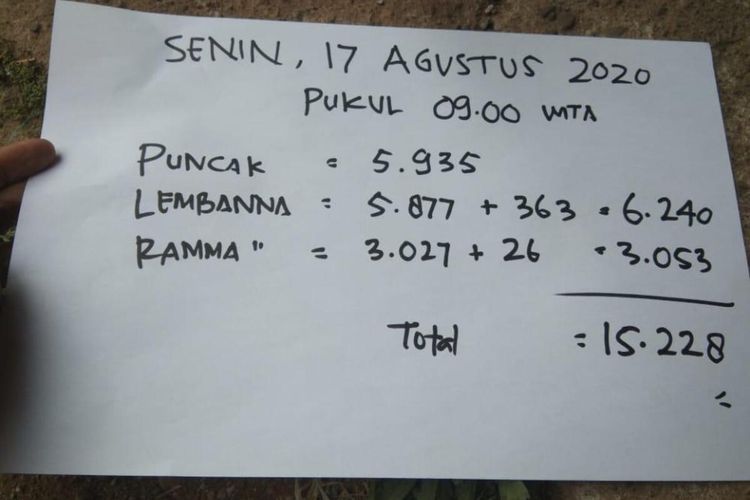 SENIN, 17 AGUSTUS 2020
PUKUL 09.00 WITA
PUNCAK = 5.935
LEMBANNA = 5.877 + 363 = 6.240
RAMMA" = 3.027 + 26 = 3.053
Total = 15.228